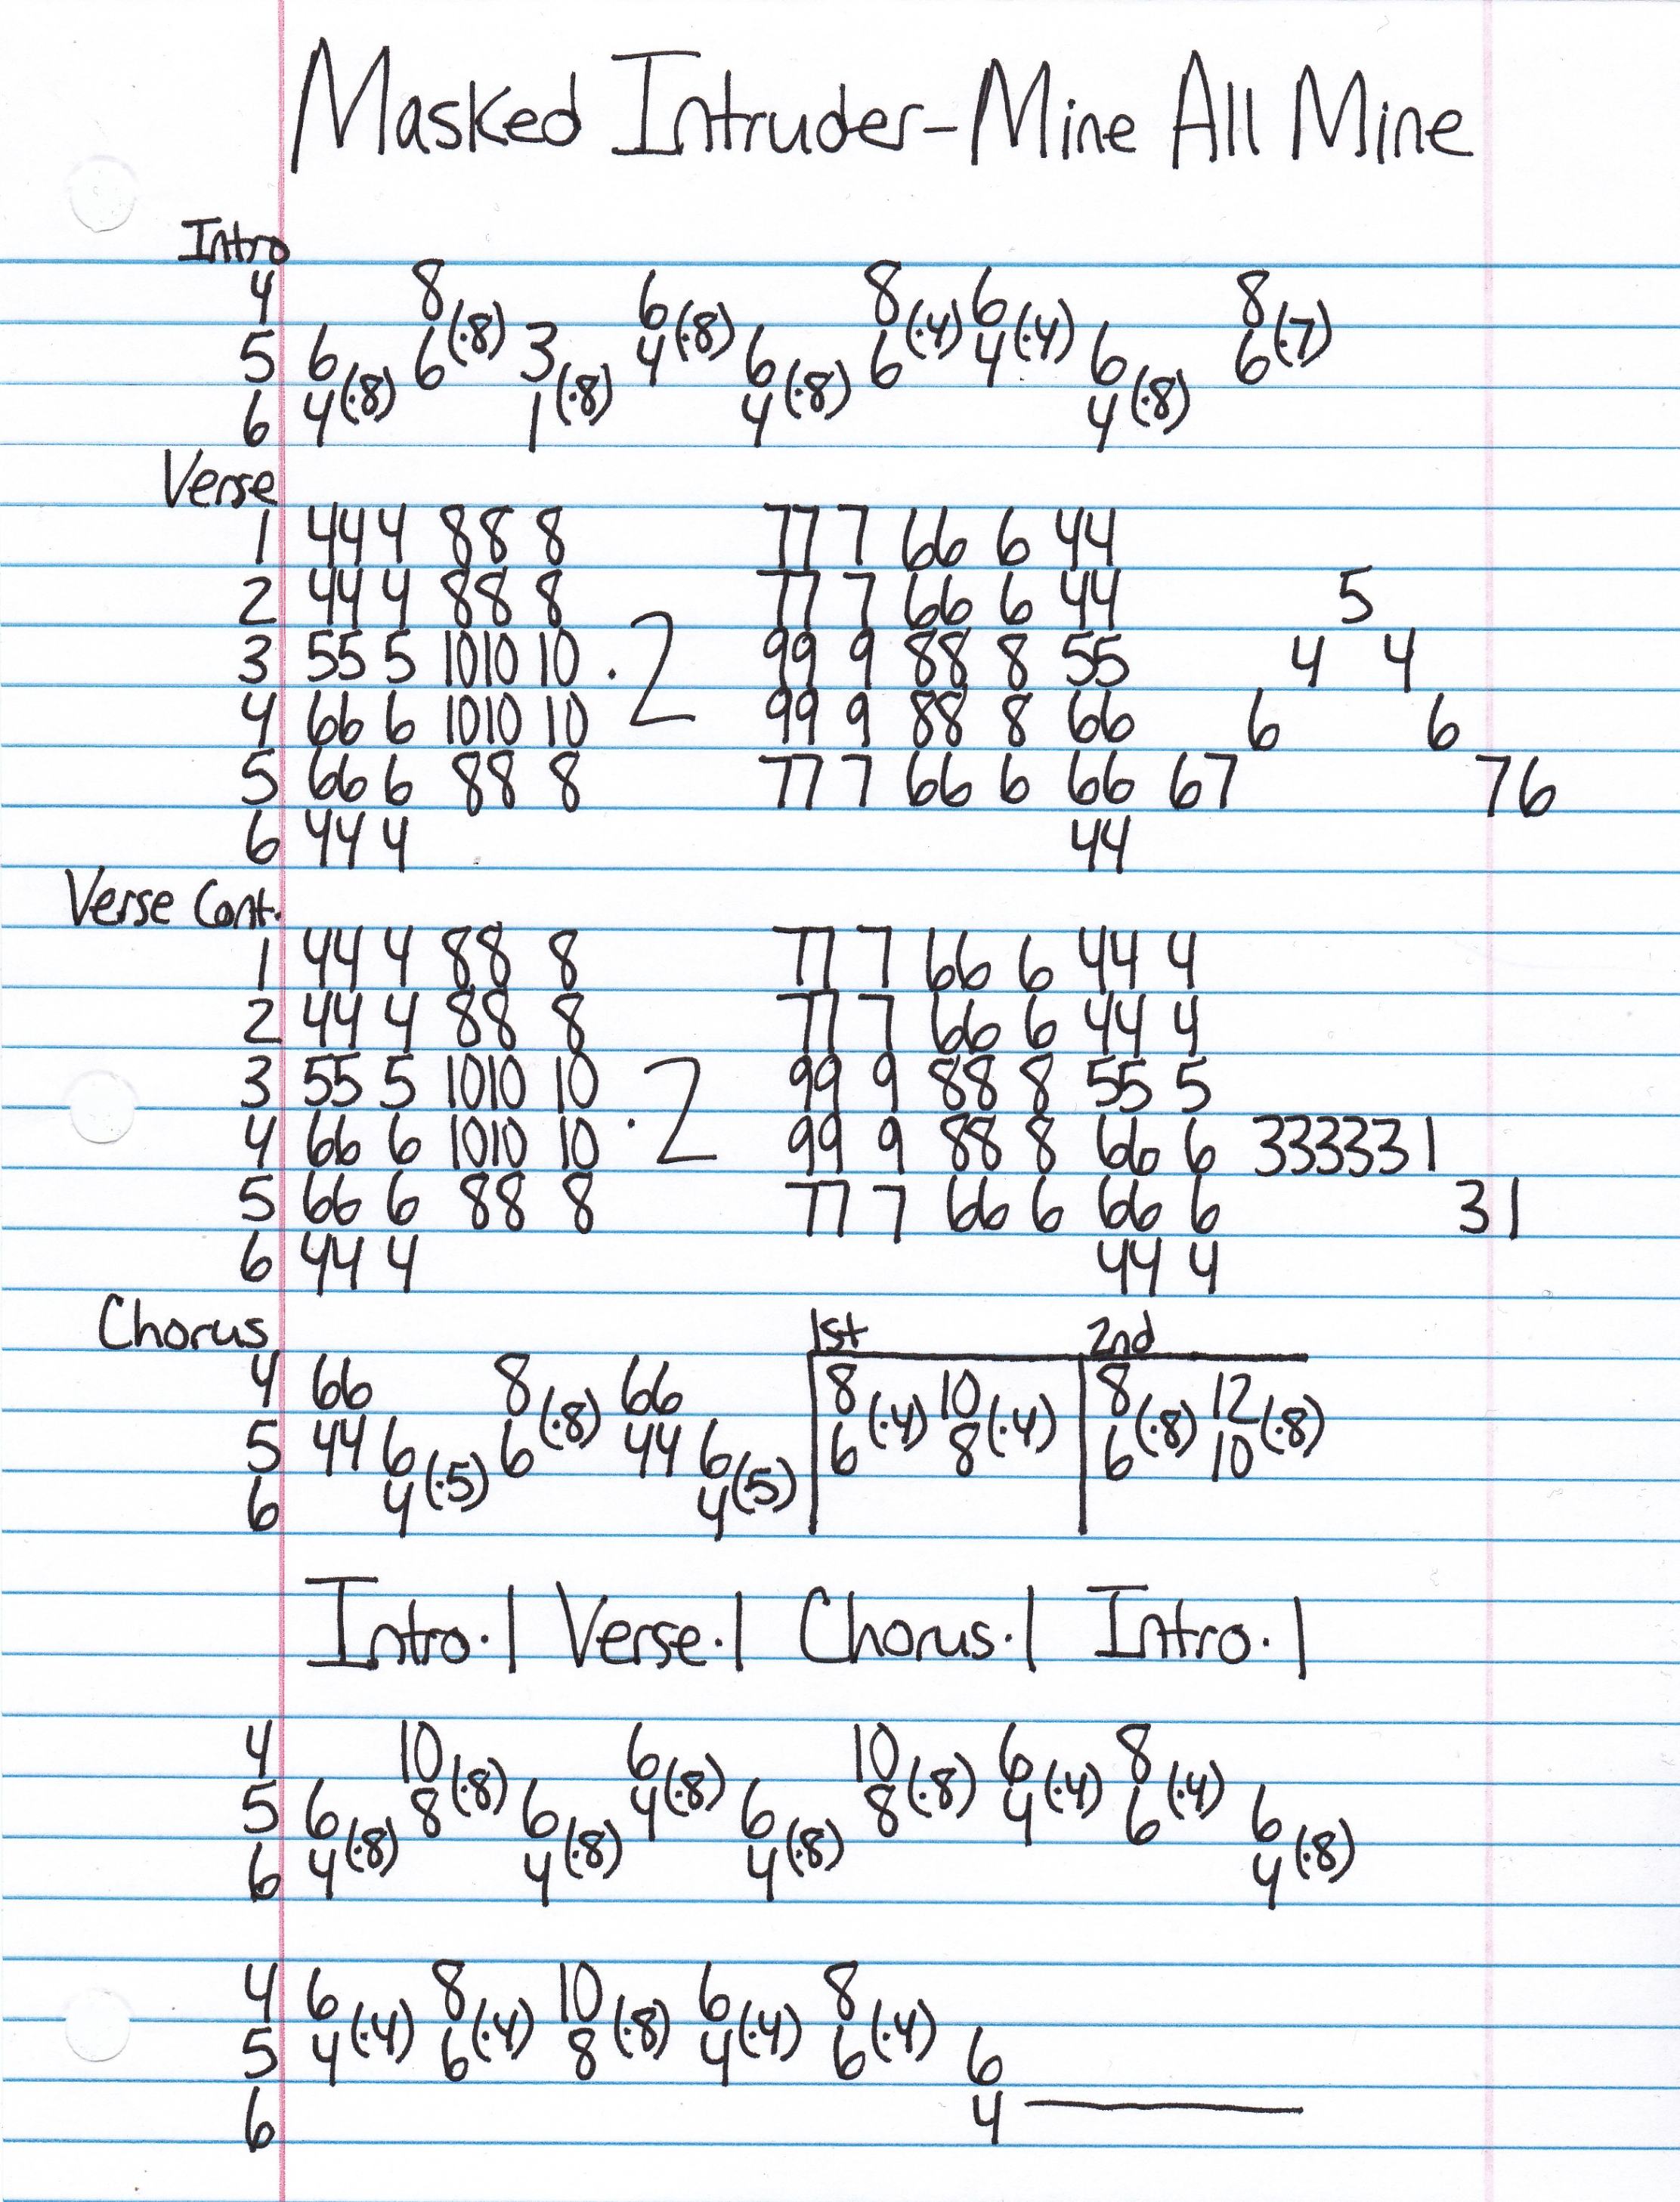 Masked Intruder-Mine All Mine
Intro
4 8(.8) 6(.8) 8(.4) 6(.4) 8(.7)
5 6(.8) 6 3(.8) 4 6(.8) 6 4 6(.8) 6
6 4 1 4 4
Verse
1 44 4 88 8 77 7 66 6 44
2 44 4 88 8 77 7 66 6 44 5
3 55 5 1010 10 .2 99 9 88 8 55 4 4
4 66 6 1010 10 99 9 88 8 66 6 6
5 66 6 88 8 77 7 66 6 66 67 76
6 44 4 44
Verse Cont.
1 44 4 88 8 77 7 66 6 44 4
2 44 4 88 8 77 7 66 6 44 4
3 55 5 1010 10 .2 99 9 88 8 55 5
4 66 6 1010 10 99 9 88 8 66 6 333331
5 66 6 88 8 77 7 66 6 66 6 31
6 44 4 44 4
Chorus 1st 2nd
4 66 8(.8) 66 8(.4) 10(.4) 8(.8) 12(.8)
5 44 6(.5) 6 44 6(5) 6 8 6 10
6 4 4
Intro.1 Verse.1 Chorus.1 Intro.1
4 10(.8) 6(.8) 10(.8) 6(.4) 8(.4)
5 6(.8) 8 6(.8) 4 6(.8) 8 4 6 6(.8)
6 4 4 4 4
4 6(.4) 8(.4) 10(.8) 6(.4) 8(.4)
5 4 6 8 4 6 6
6 4